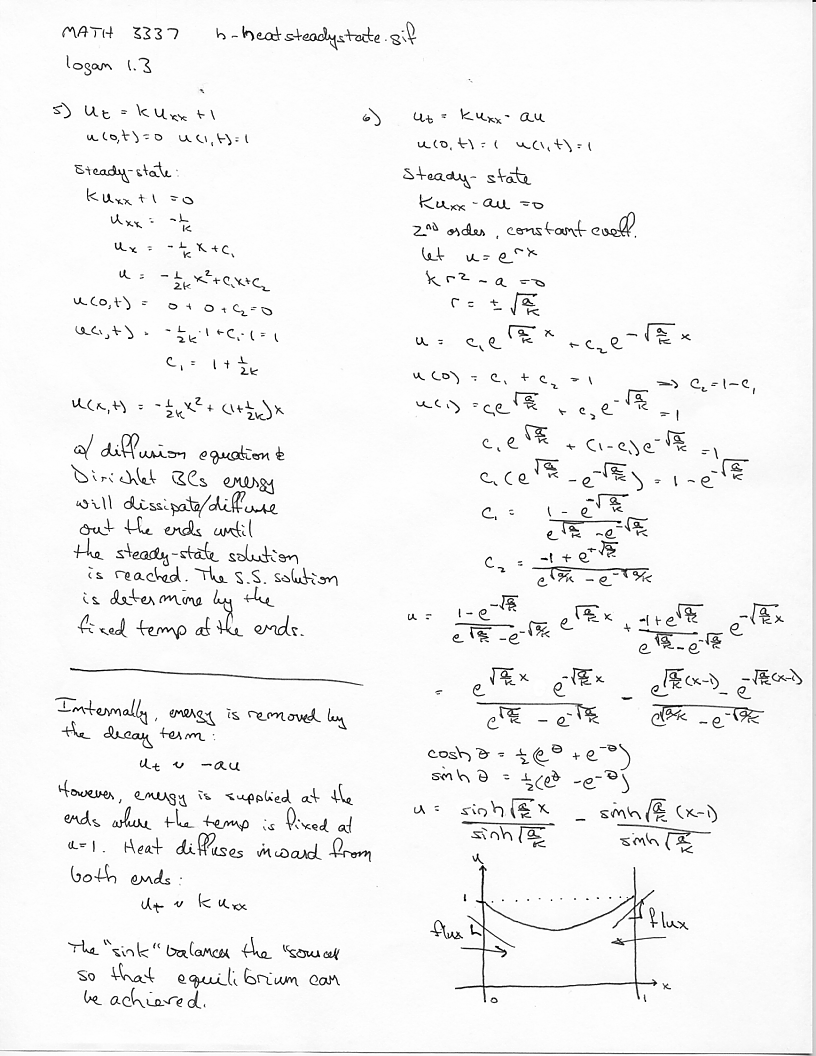 MATH 3337 h-heatsteadystate.gif
Logan 1.3
5) u_t = k u_xx + 1
u(0,t)=0 u(1,t)=1
Steady-state:
k u_xx + 1 = 0
u_xx = -1/k
u_x = -1/k x + c_1
u = -1/2k x² + c_1x + c_2
u(0,t) = 0 + 0 + c_2 = 0
u(1,t) = -1/2k · 1 + c_1 · 1 = 1
c_1 = 1 + 1/2k
u(x,t) = -1/2k x² + (1+1/2k)x
w/ diffusion equation &
Dirichlet BCs energy
will dissipate/diffuse
out the ends until
the steady-state solution
is reached. The S.S. solution
is determine by the
fixed temp at the ends.
Internally, energy is removed by
the decay term:
u_t ~ -au
However, energy is supplied at the
ends where the temp is fixed at
u=1. Heat diffuses inward from
both ends:
u_t ~ k u_xx
The "sink" balances the "source"
so that equilibrium can
be achieved.
6) u_t = k u_xx - au
u(0,t) = 1 u(1,t) = 1
Steady-state
k u_xx - au = 0
2nd order, constant coeff.
let u = e^rx
k r² - a = 0
r = ± √(a/k)
u = c_1 e^(√(a/k) x) + c_2 e^(-√(a/k) x)
u(0) = c_1 + c_2 = 1 ⇒ c_2 = 1 - c_1
u(1) = c_1 e^√(a/k) + c_2 e^-√(a/k) = 1
c_1 e^√(a/k) + (1-c_1) e^-√(a/k) = 1
c_1 (e^√(a/k) - e^-√(a/k)) = 1 - e^-√(a/k)
c_1 = (1 - e^-√(a/k)) / (e^√(a/k) - e^-√(a/k))
c_2 = (-1 + e^+√(a/k)) / (e^√(a/k) - e^-√(a/k))
u = (1 - e^-√(a/k)) / (e^√(a/k) - e^-√(a/k)) e^(√(a/k) x) + (-1 + e^√(a/k)) / (e^√(a/k) - e^-√(a/k)) e^(-√(a/k) x)
= (e^(√(a/k) x) e^(-√(a/k) x)) / (e^√(a/k) - e^-√(a/k)) - (e^(√(a/k) (x-1)) - e^(-√(a/k) (x-1))) / (e^√(a/k) - e^-√(a/k))
cosh θ = 1/2 (e^θ + e^-θ)
sinh θ = 1/2 (e^θ - e^-θ)
u = sinh √(a/k) x / sinh √(a/k) - sinh √(a/k) (x-1) / sinh √(a/k)
u
1
flux
flux
x
0
1